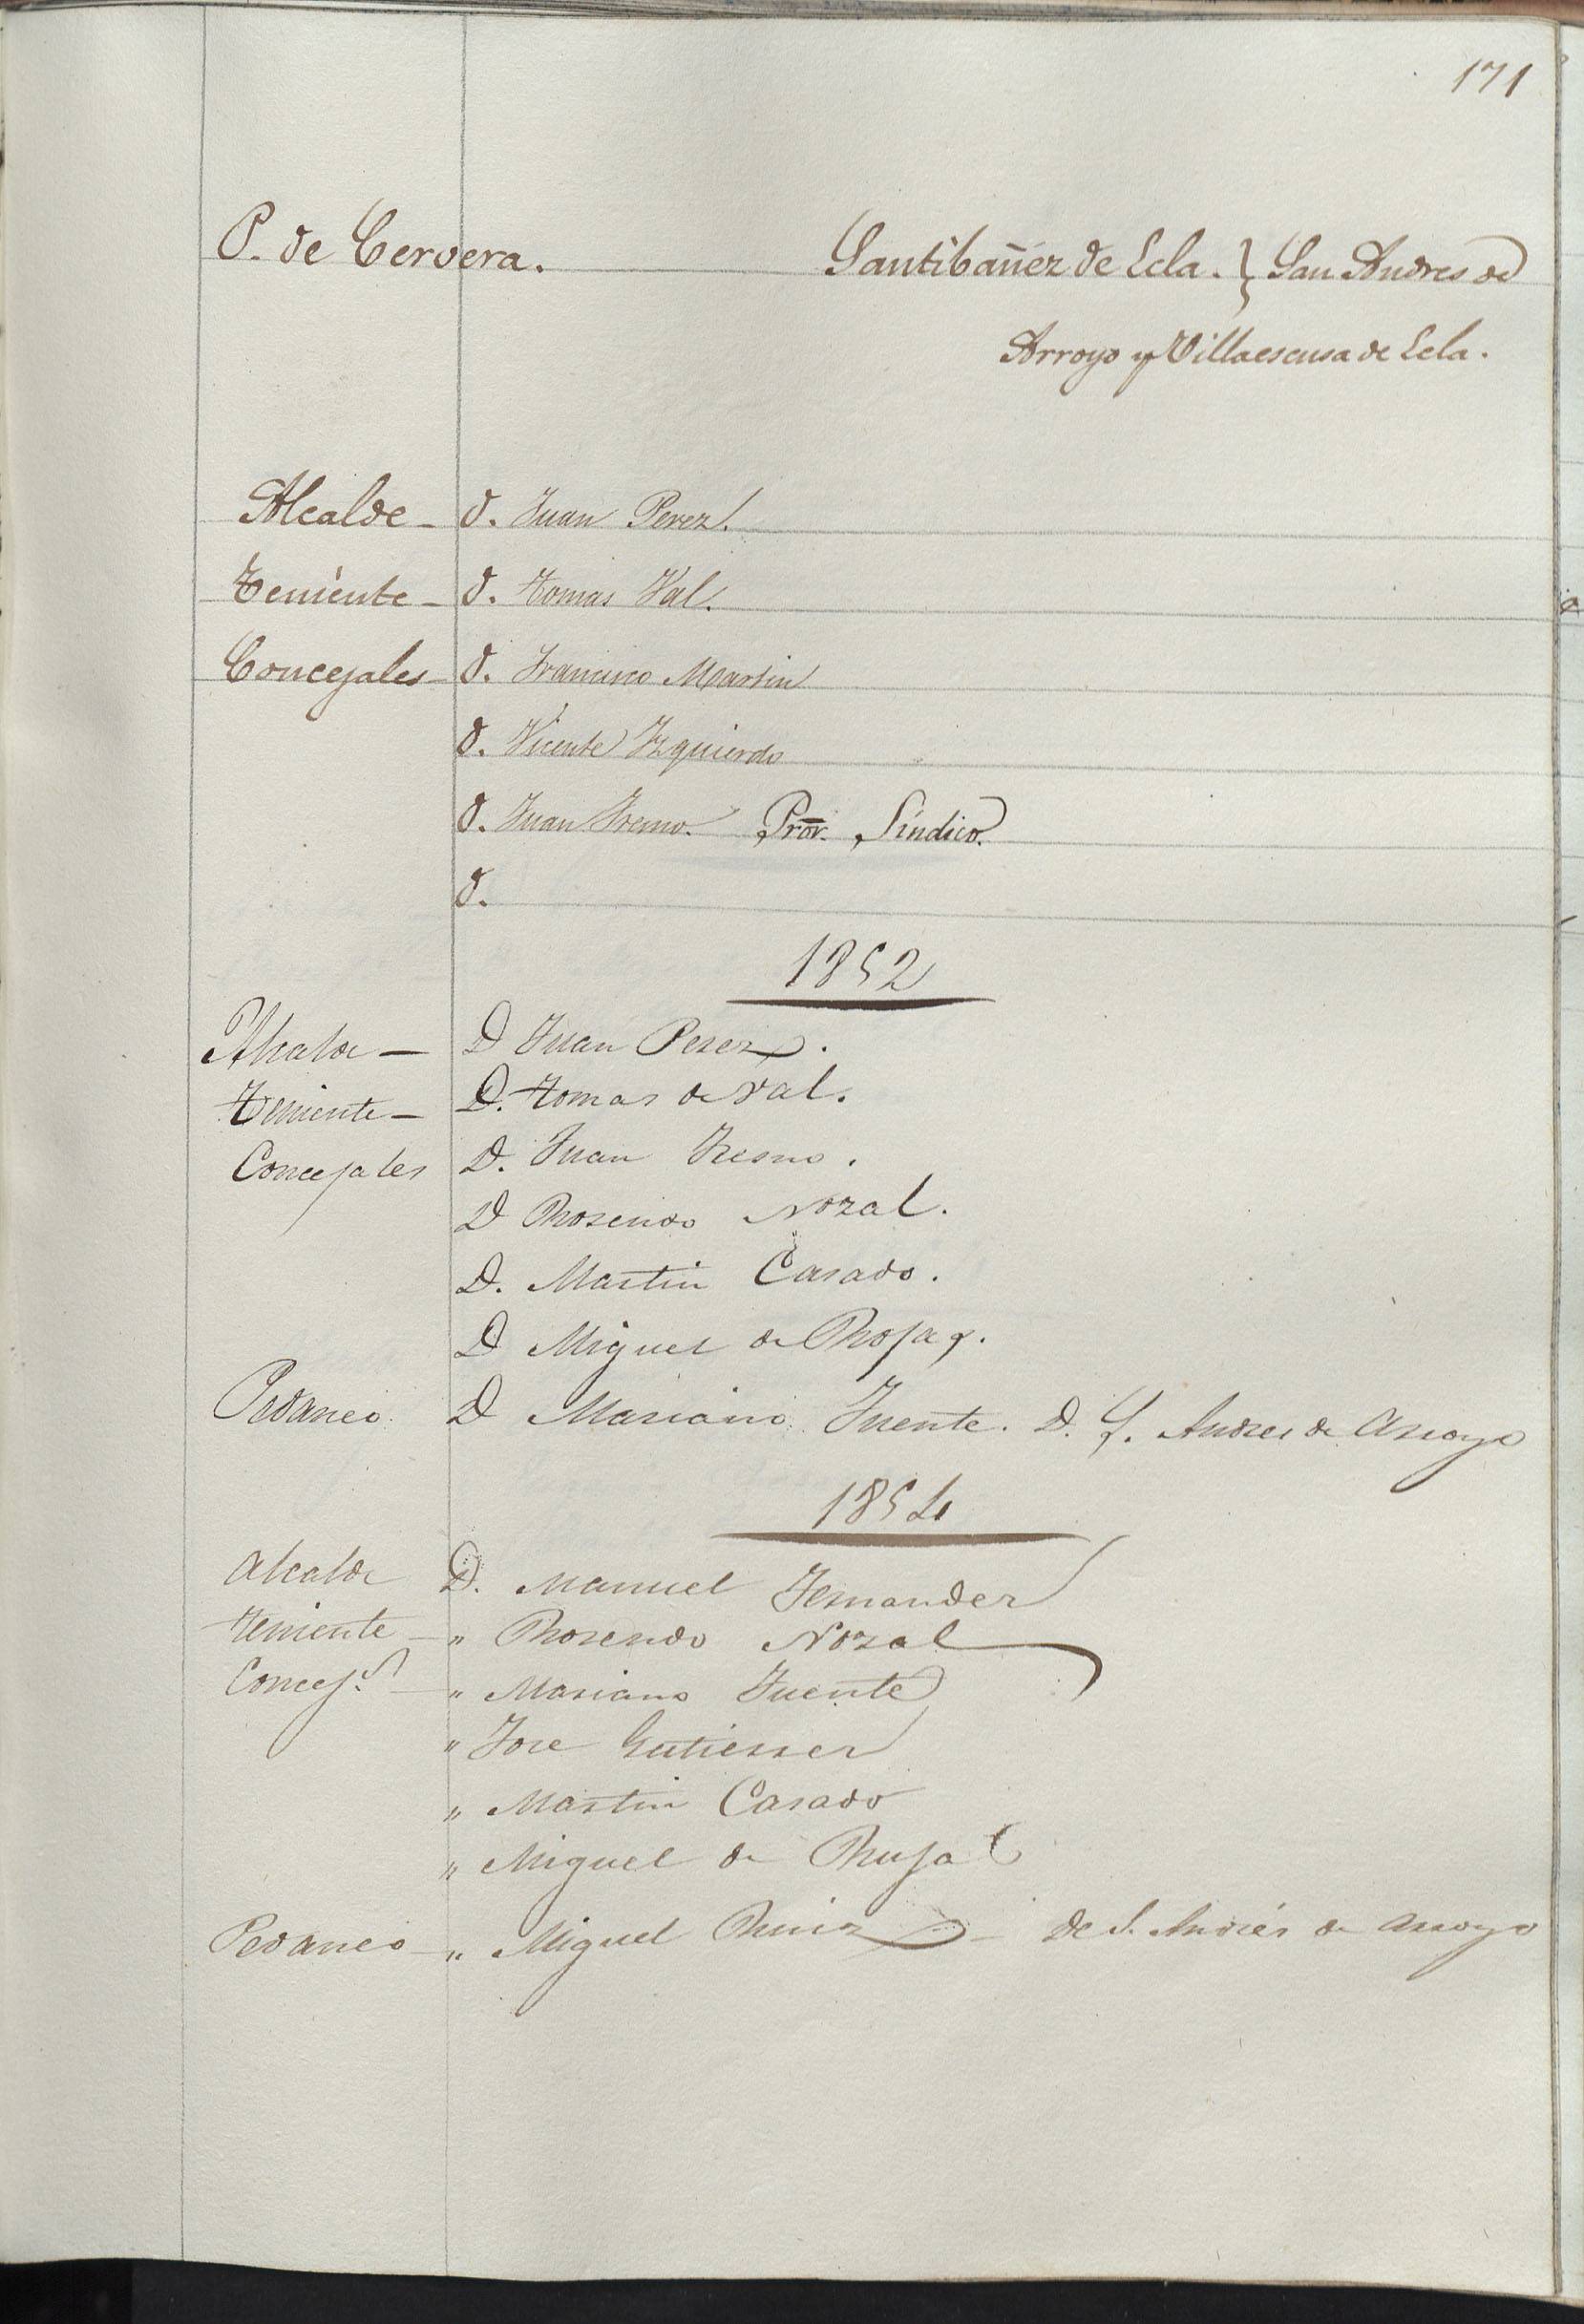 171
P. de Cervera. Santibañez de Ecla. } San Andres de
Arroyo y Villaescusa de Ecla.
Alcalde - D. Juan Perez.
Teniente - D. Tomas Val.
Concejales - D. Francisco Martin
D. Vicente Izquierdo
D. Juan Fresno. Pror. Síndico.
D.
1852
Alcalde - D Juan Perez.
Teniente - D. Tomas de Val.
Concejales D. Juan Fresno.
D Rosendo Nozal.
D. Martin Casado.
D Miguel de
Pedaneo D Mariano Fuente. D. S. Andres de Arroyo
1854
Alcalde D. Manuel Fernandez
Teniente - " Rosendo Nozal
Concej.s - " Mariano Fuente
" Jose Gutierrez
" Martin Casado
" Miguel de
Pedaneo - " Miguel Ruiz - de S. Andrés de Arroyo